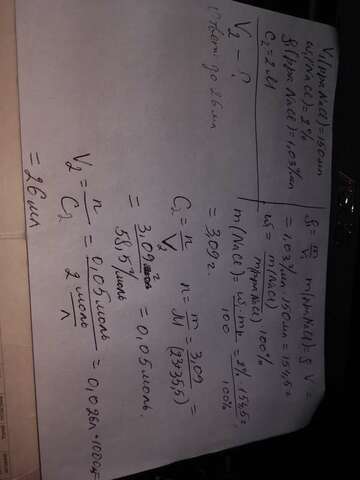 V₁(рра NaCl)=150 мл
ω₁(NaCl)=2%
ρ(рра NaCl)=1,03 г/мл
C₂=2М
V₂ - ?
Ответ: до 26 мл
ρ = m/V₁ m(рра NaCl)= ρ V =
= 1,03 г/мл · 150 мл = 154,5 г
ω = m(NaCl)/m(рра NaCl) 100%
m(NaCl) = ω · mр/100 = 2% · 154,5 г/100% =
= 3,09 г.
C₂ = n/V₂ n = m/M = 3,09/(23+35,5) =
= 3,09 г/58,5 г/моль = 0,05 моль.
V₂ = n/C₂ = 0,05 моль/2 моль/л = 0,026 л · 1000 =
= 26 мл